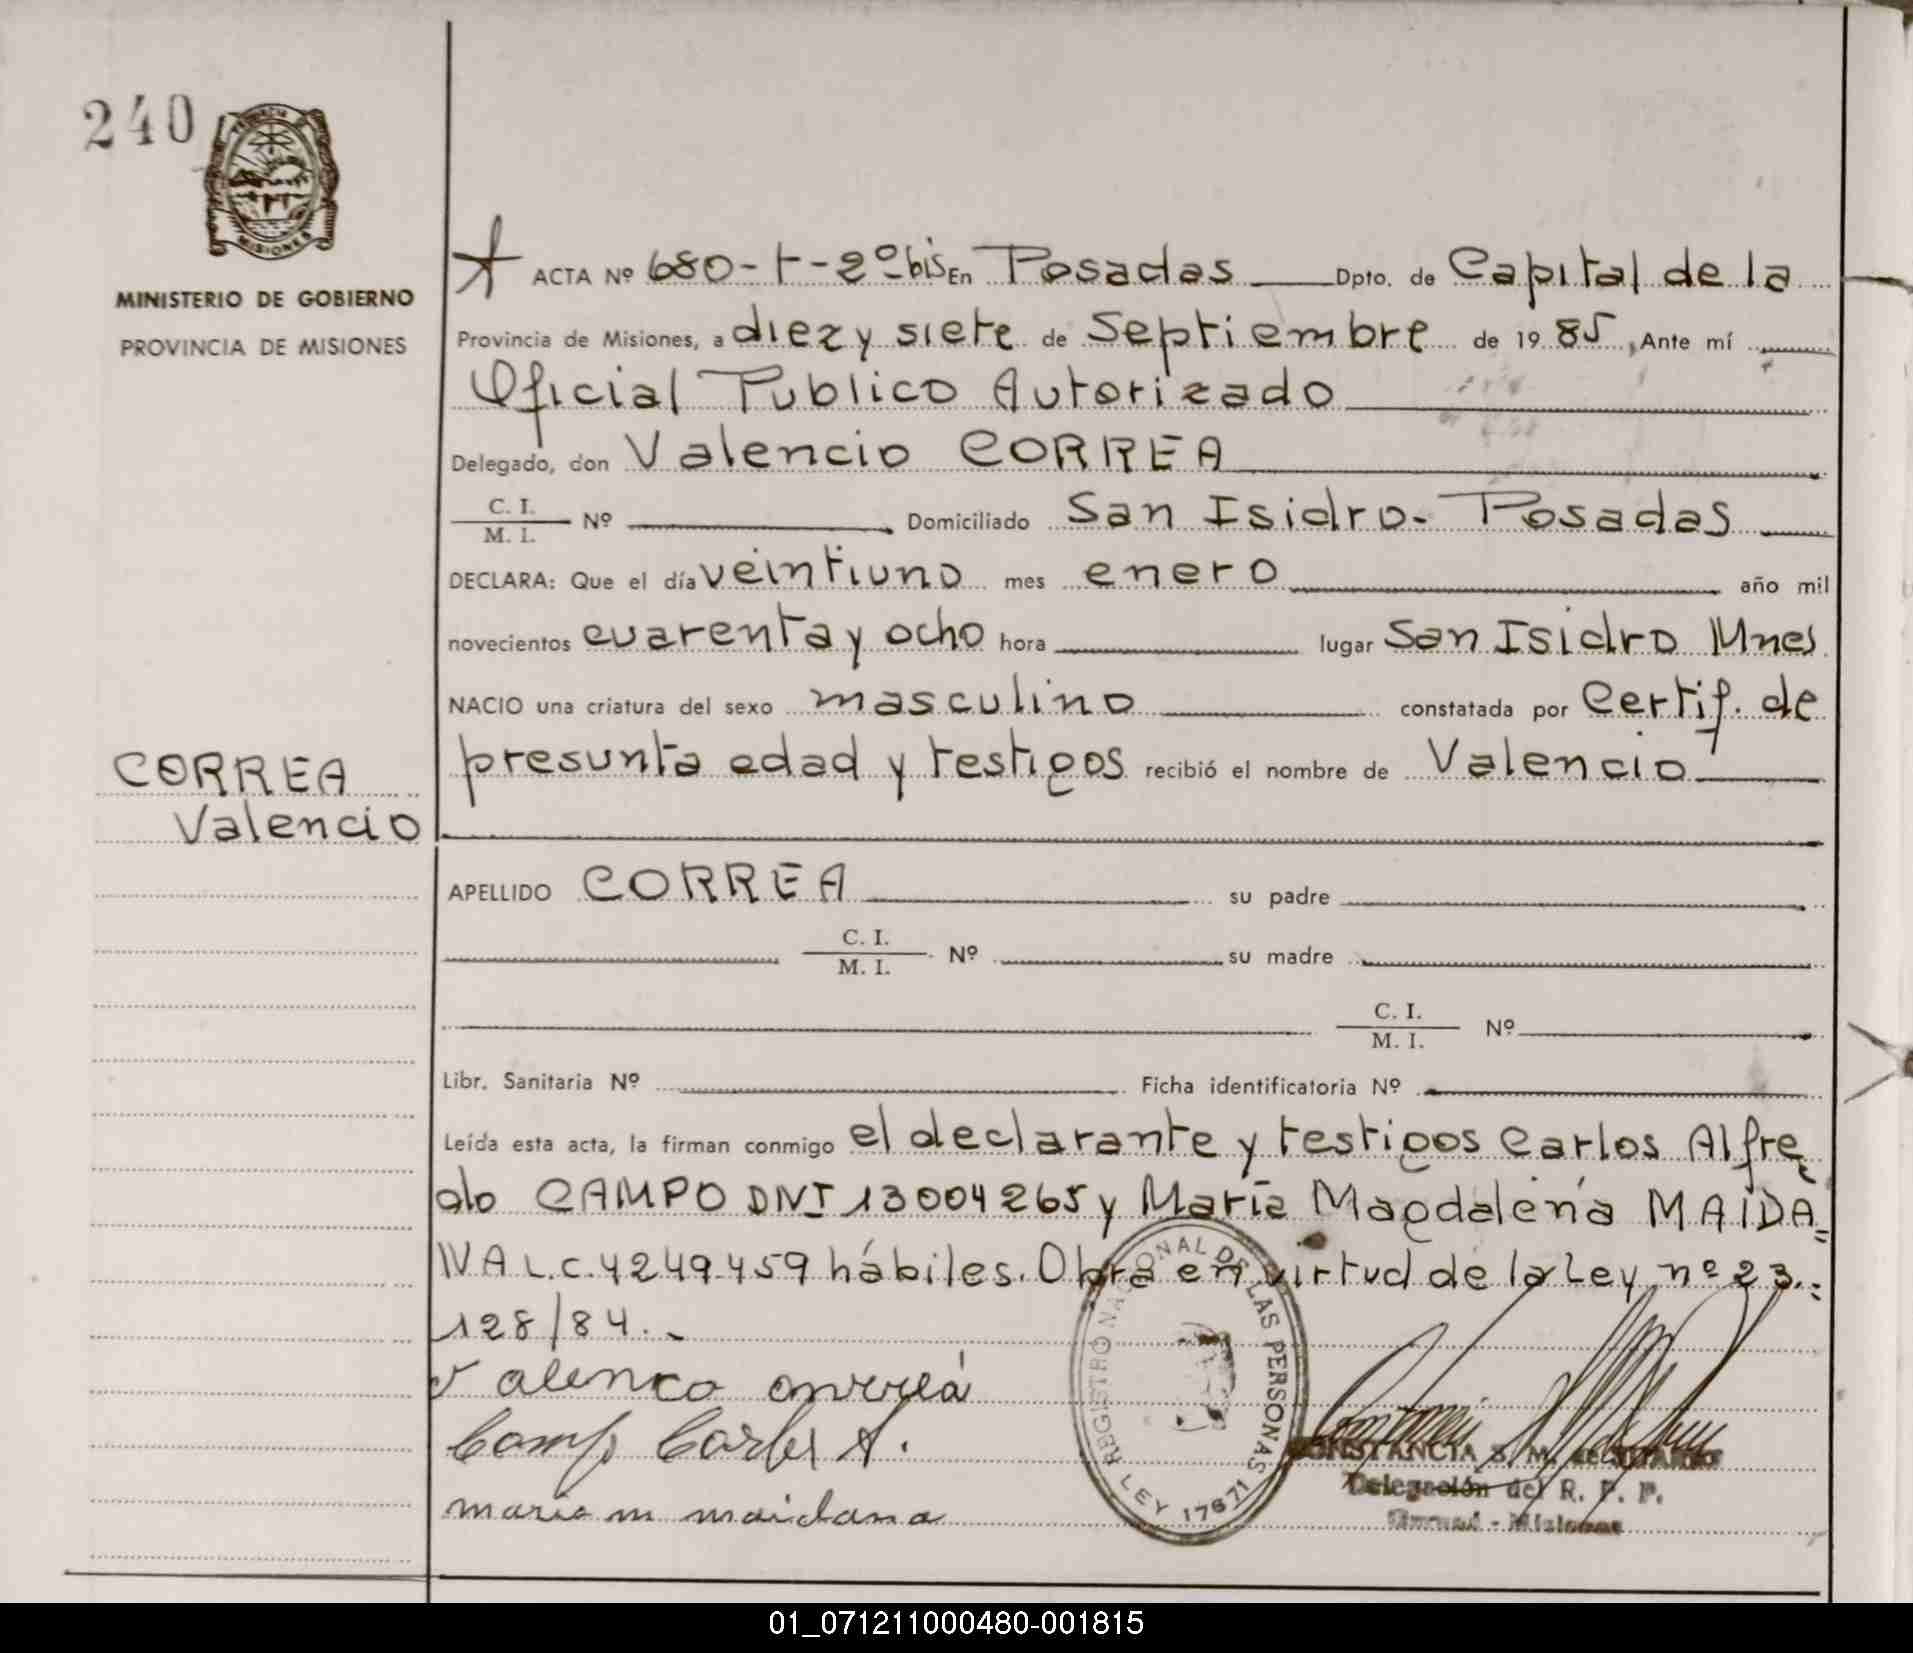 240
MISIONES
MINISTERIO DE GOBIERNO
PROVINCIA DE MISIONES
ACTA Nº 680-t-2º bis En Posadas Dpto. de Capital de la
Provincia de Misiones, a diez y siete de Septiembre de 1985, Ante mí
Oficial Publico Autorizado
Delegado, don Valencio CORREA
C. I.
M. I.
Nº Domiciliado San Isidro- Posadas
DECLARA: Que el día veintiuno mes enero año mil
novecientos cuarenta y ocho hora lugar San Isidro Mnes
NACIO una criatura del sexo masculino constatada por Certif. de
presunta edad y testigos recibió el nombre de Valencio
CORREA
Valencio
APELLIDO CORREA su padre
C. I.
M. I.
Nº su madre
C. I.
M. I.
Nº
Libr. Sanitaria Nº Ficha identificatoria Nº
Leída esta acta, la firman conmigo el declarante y testigos Carlos Alfre
do CAMPO DNI 13004265 y María Magdalena MAIDA=
NA L.C. 4249459 hábiles. Obra en virtud de la Ley nº 23.
128/84.-
Campo Carlos A.
maria m maidana
REGISTRO NACIONAL DE LAS PERSONAS
LEY 17671
CONSTANCIA S. M. de
Delegación del R. P. P.
Misiones
01_071211000480-001815